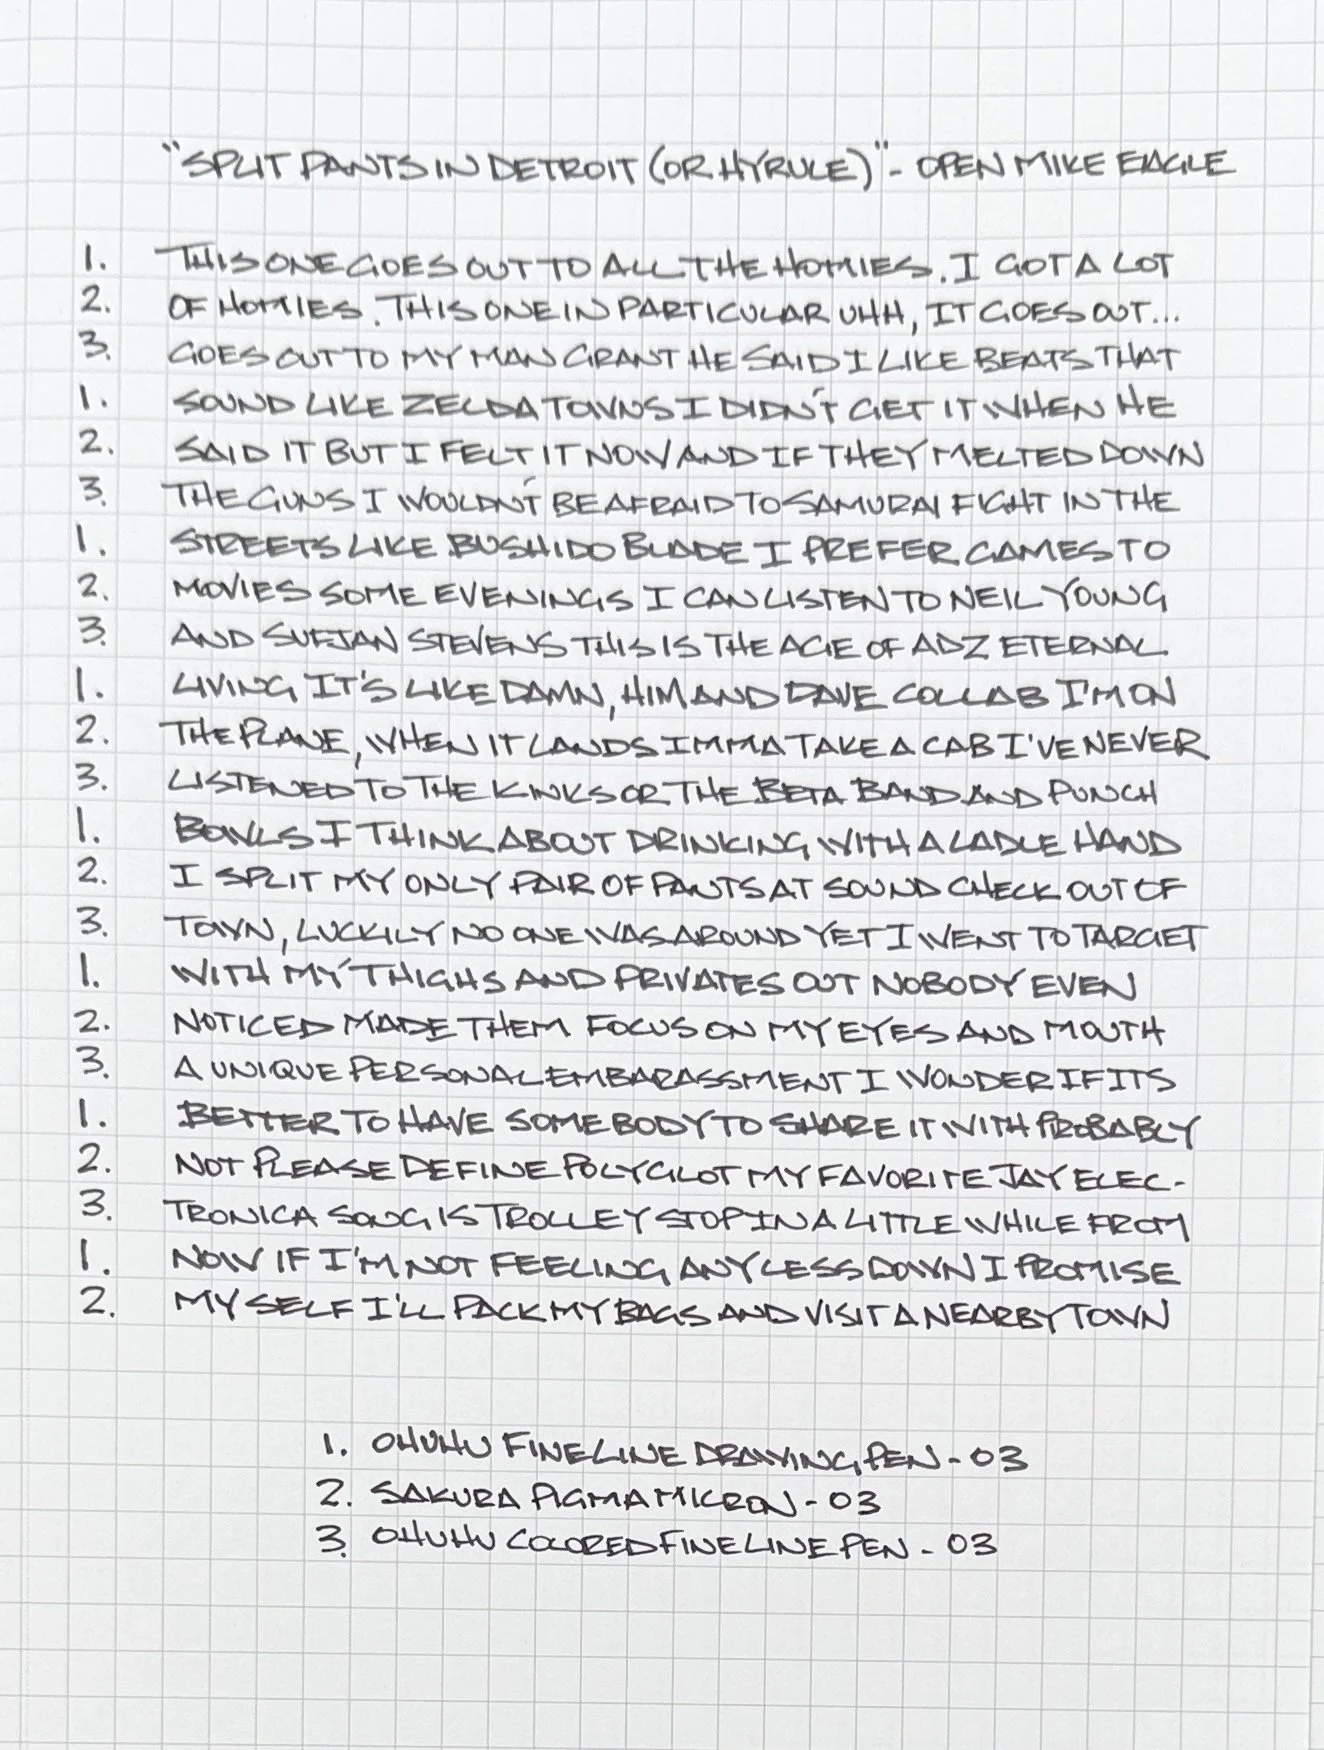 "SPLIT PANTS IN DETROIT (OR HYRULE)" - OPEN MIKE EAGLE
1. THIS ONE GOES OUT TO ALL THE HOMIES. I GOT A LOT
2. OF HOMIES. THIS ONE IN PARTICULAR UHH, IT GOES OUT...
3. GOES OUT TO MY MAN GRANT HE SAID I LIKE BEATS THAT
1. SOUND LIKE ZELDA TOWNS I DIDN'T GET IT WHEN HE
2. SAID IT BUT I FELT IT NOW AND IF THEY MELTED DOWN
3. THE GUNS I WOULDN'T BE AFRAID TO SAMURAI FIGHT IN THE
1. STREETS LIKE BUSHIDO BLADE I PREFER GAMES TO
2. MOVIES SOME EVENINGS I CAN LISTEN TO NEIL YOUNG
3. AND SUFJAN STEVENS THIS IS THE AGE OF ADZ ETERNAL
1. LIVING IT'S LIKE DAMN, HIM AND DAVE COLLAB I'M ON
2. THE PLANE, WHEN IT LANDS IMMA TAKE A CAB I'VE NEVER
3. LISTENED TO THE KINKS OR THE BETA BAND AND PUNCH
1. BOWLS I THINK ABOUT DRINKING WITH A LADLE HAND
2. I SPLIT MY ONLY PAIR OF PANTS AT SOUND CHECK OUT OF
3. TOWN, LUCKILY NO ONE WAS AROUND YET I WENT TO TARGET
1. WITH MY THIGHS AND PRIVATES OUT NOBODY EVEN
2. NOTICED MADE THEM FOCUS ON MY EYES AND MOUTH
3. A UNIQUE PERSONAL EMBARASSMENT I WONDER IF ITS
1. BETTER TO HAVE SOMEBODY TO SHARE IT WITH PROBABLY
2. NOT PLEASE DEFINE POLYGLOT MY FAVORITE JAY ELEC-
3. TRONICA SONG IS TROLLEY STOP IN A LITTLE WHILE FROM
1. NOW IF I'M NOT FEELING ANY LESS DOWN I PROMISE
2. MYSELF I'LL PACK MY BAGS AND VISIT A NEARBY TOWN
1. OHUHU FINELINE DRAWING PEN - 03
2. SAKURA PIGMA MICRON - 03
3. OHUHU COLORED FINELINE PEN - 03